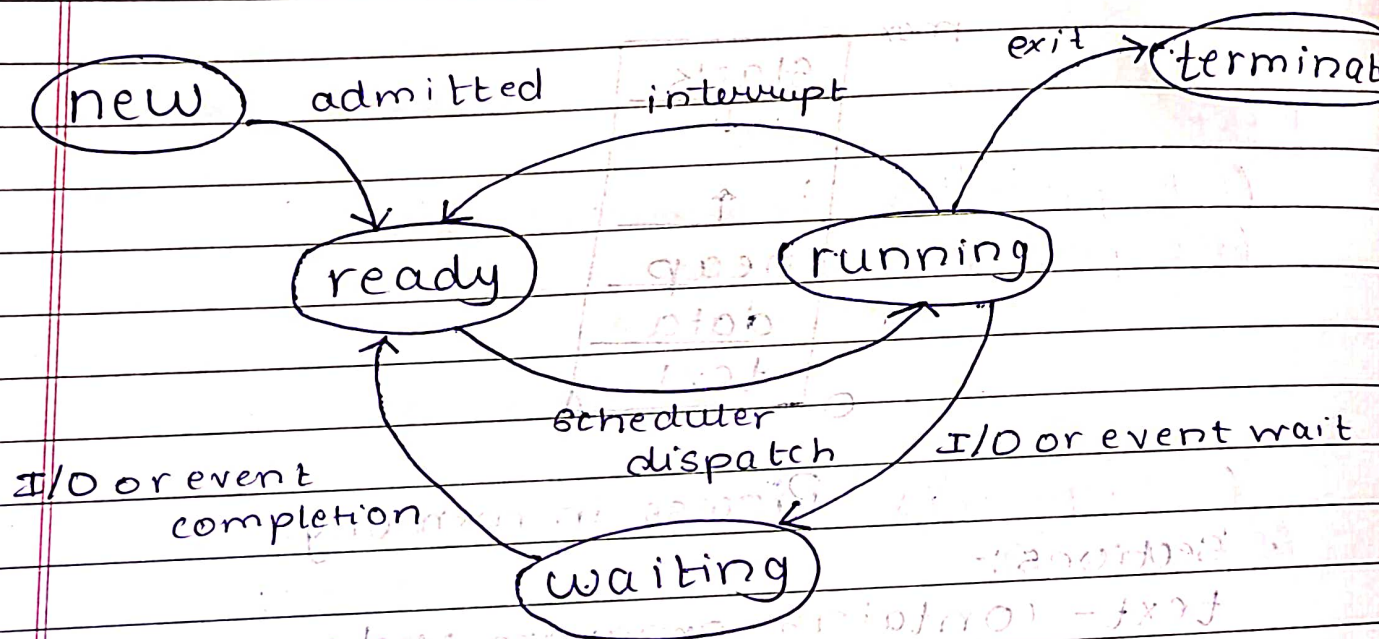 new
admitted
interrupt
exit
terminat
ready
running
scheduler
dispatch
I/O or event wait
I/O or event
completion
waiting